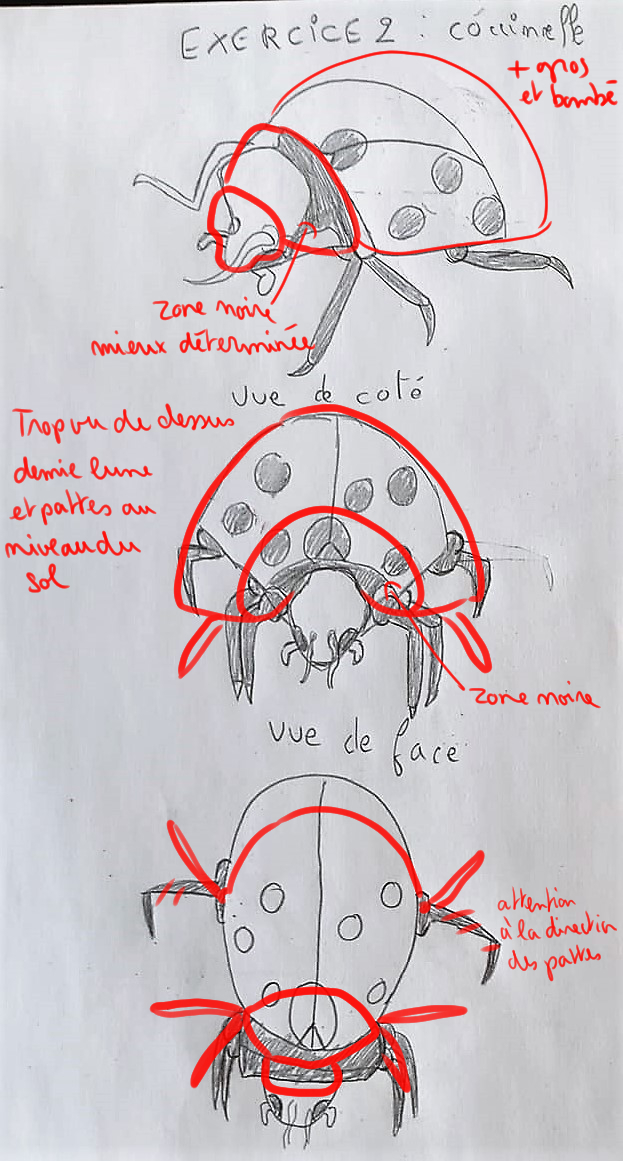 EXERCICE 2 : coccinelle
+ gros
et bombé
zone noire
mieux déterminée
vue de coté
Trop vu de dessus
demie lune
et pattes au
niveau du
sol
zone noire
vue de face
attention
à la direction
des pattes